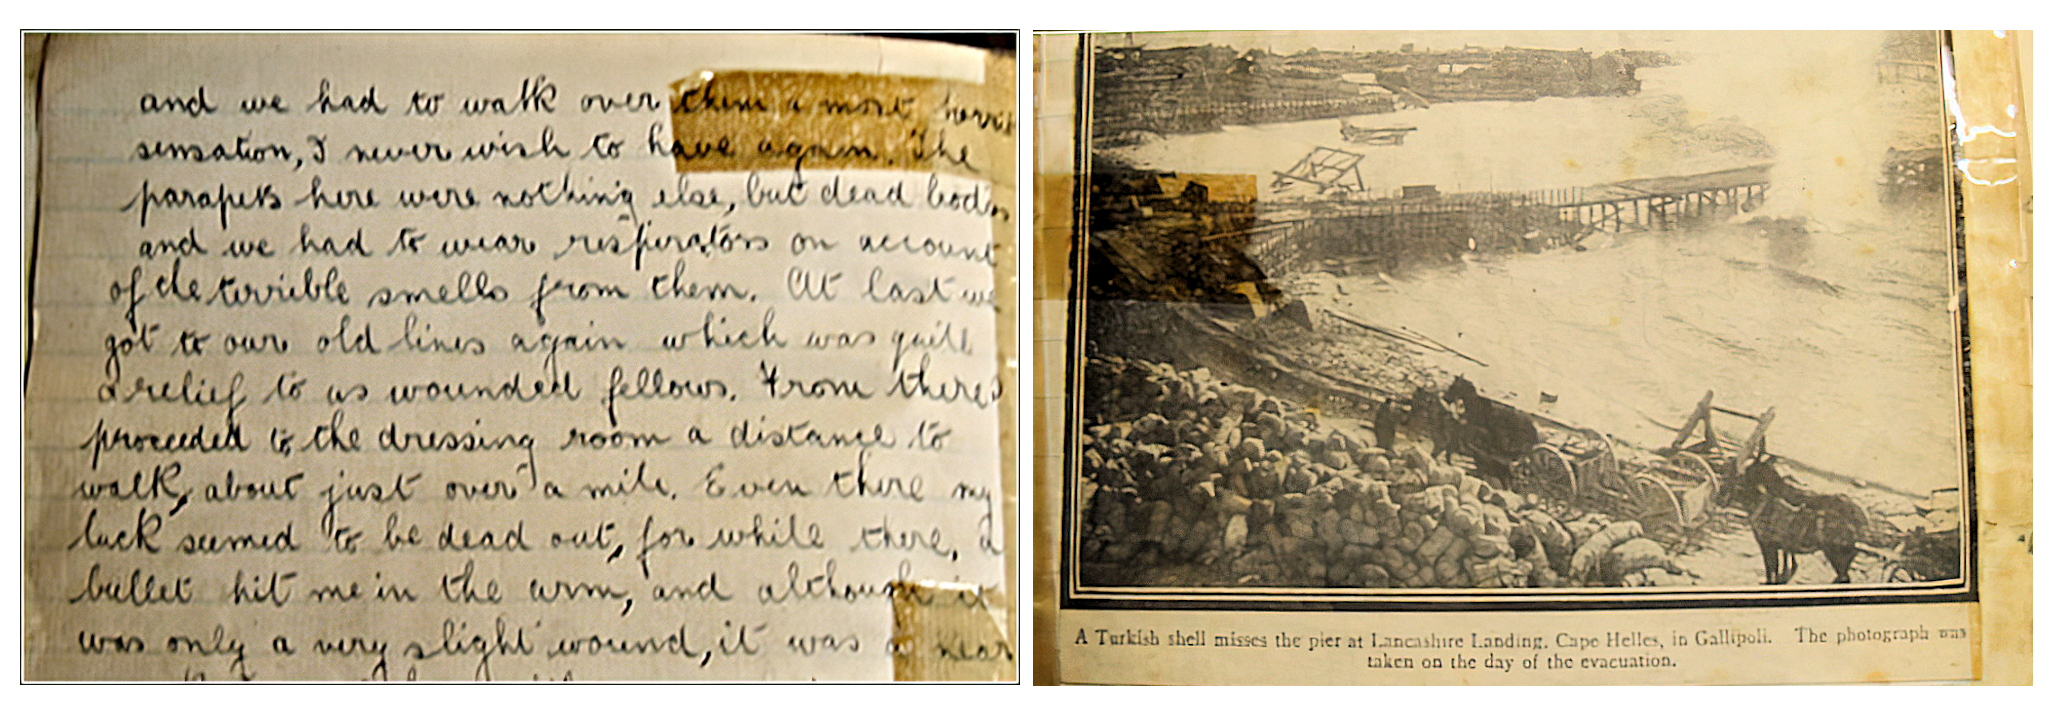 and we had to walk over them a most
sensation, I never wish to have again. The
parapets here were nothing else, but dead bodies
and we had to wear respirators on account
of the terrible smells from them. At last we
got to our old lines again which was quite
a relief to us wounded fellows. From there
proceeded to the dressing room a distance to
walk, about just over a mile. Even there my
luck seemed to be dead out, for while there, a
bullet hit me in the arm, and although it
was only a very slight wound, it was a near
A Turkish shell misses the pier at Lancashire Landing, Cape Helles, in Gallipoli. The photograph was
taken on the day of the evacuation.